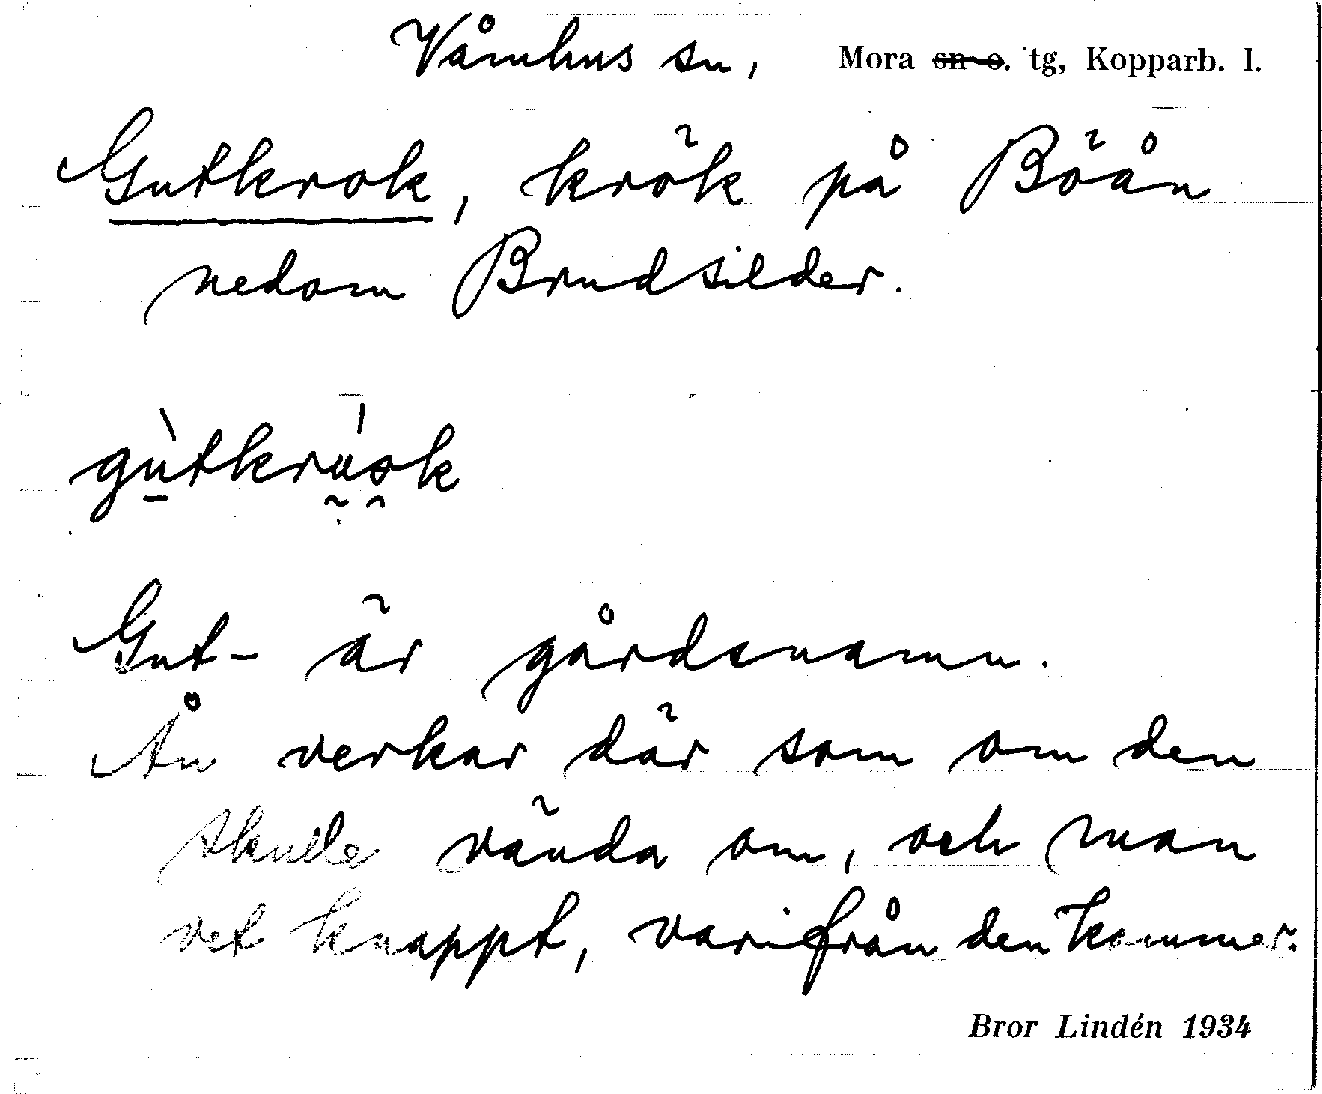 Våmhus sn, Mora sn o. tg, Kopparb. l.
Gutkrok, krök på Böån
nedom Brudsilder.
gùtkrúok
Gut- är gårdsnamn.
Ån verkar där som om den
skulle vända om, och man
vet knappt, varifrån den kommer.
Bror Lindén 1934